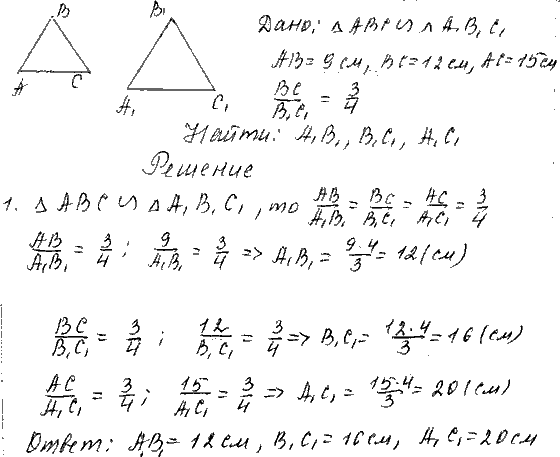 B
B₁
A
C
A₁
C₁
Дано: △ ABC ∽ △ A₁B₁C₁
AB = 9 см, BC = 12 см, AC = 15 см
BC/B₁C₁ = 3/4
Найти: A₁B₁, B₁C₁, A₁C₁
Решение
1. △ ABC ∽ △ A₁B₁C₁, то AB/A₁B₁ = BC/B₁C₁ = AC/A₁C₁ = 3/4
AB/A₁B₁ = 3/4 ; 9/A₁B₁ = 3/4 => A₁B₁ = 9·4/3 = 12 (см)
BC/B₁C₁ = 3/4 ; 12/B₁C₁ = 3/4 => B₁C₁ = 12·4/3 = 16 (см)
AC/A₁C₁ = 3/4 ; 15/A₁C₁ = 3/4 => A₁C₁ = 15·4/3 = 20 (см)
Ответ: A₁B₁ = 12 см, B₁C₁ = 16 см, A₁C₁ = 20 см